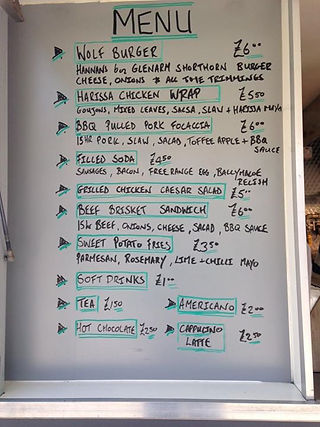 MENU
WOLF BURGER £6.00
HANNANS 6oz GLENARM SHORTHORN BURGER
CHEESE, ONIONS & ALL THE TRIMMINGS
HARISSA CHICKEN WRAP £5.50
GOUJONS, MIXED LEAVES, SALSA, SLAW + HARISSA MAYO
BBQ PULLED PORK FOCACCIA £6.00
15HR PORK, SLAW, SALAD, TOFFEE APPLE + BBQ
SAUCE
FILLED SODA £4.50
SAUSAGES, BACON, FREE RANGE EGG, BALLYMALOE
RELISH
GRILLED CHICKEN CAESAR SALAD £5.00
BEEF BRISKET SANDWICH £6.00
15hr BEEF, ONIONS, CHEESE, SALAD, BBQ SAUCE
SWEET POTATO FRIES £3.50
PARMESAN, ROSEMARY, LIME + CHILLI MAYO
SOFT DRINKS £1.00
TEA £1.50 AMERICANO £2.00
HOT CHOCOLATE £2.50 CAPPUCINO
LATTE £2.50